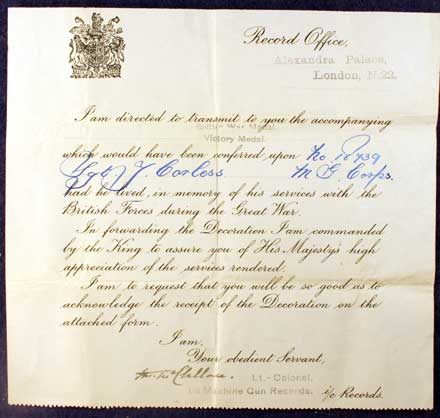 Record Office,
Alexandra Palace,
London, N.22.
I am directed to transmit to you the accompanying
British War Medal.
Victory Medal.
which would have been conferred upon No.
Sgt. J. Corless. M. G. Corps.
had he lived, in memory of his services with the
British Forces during the Great War.
In forwarding the Decoration I am commanded
by the King to assure you of His Majesty's high
appreciation of the services rendered.
I am to request that you will be so good as to
acknowledge the receipt of the Decoration on the
attached form.
I am,
Your obedient Servant,
Lt.-Colonel.
Machine Gun Records. i/c Records.